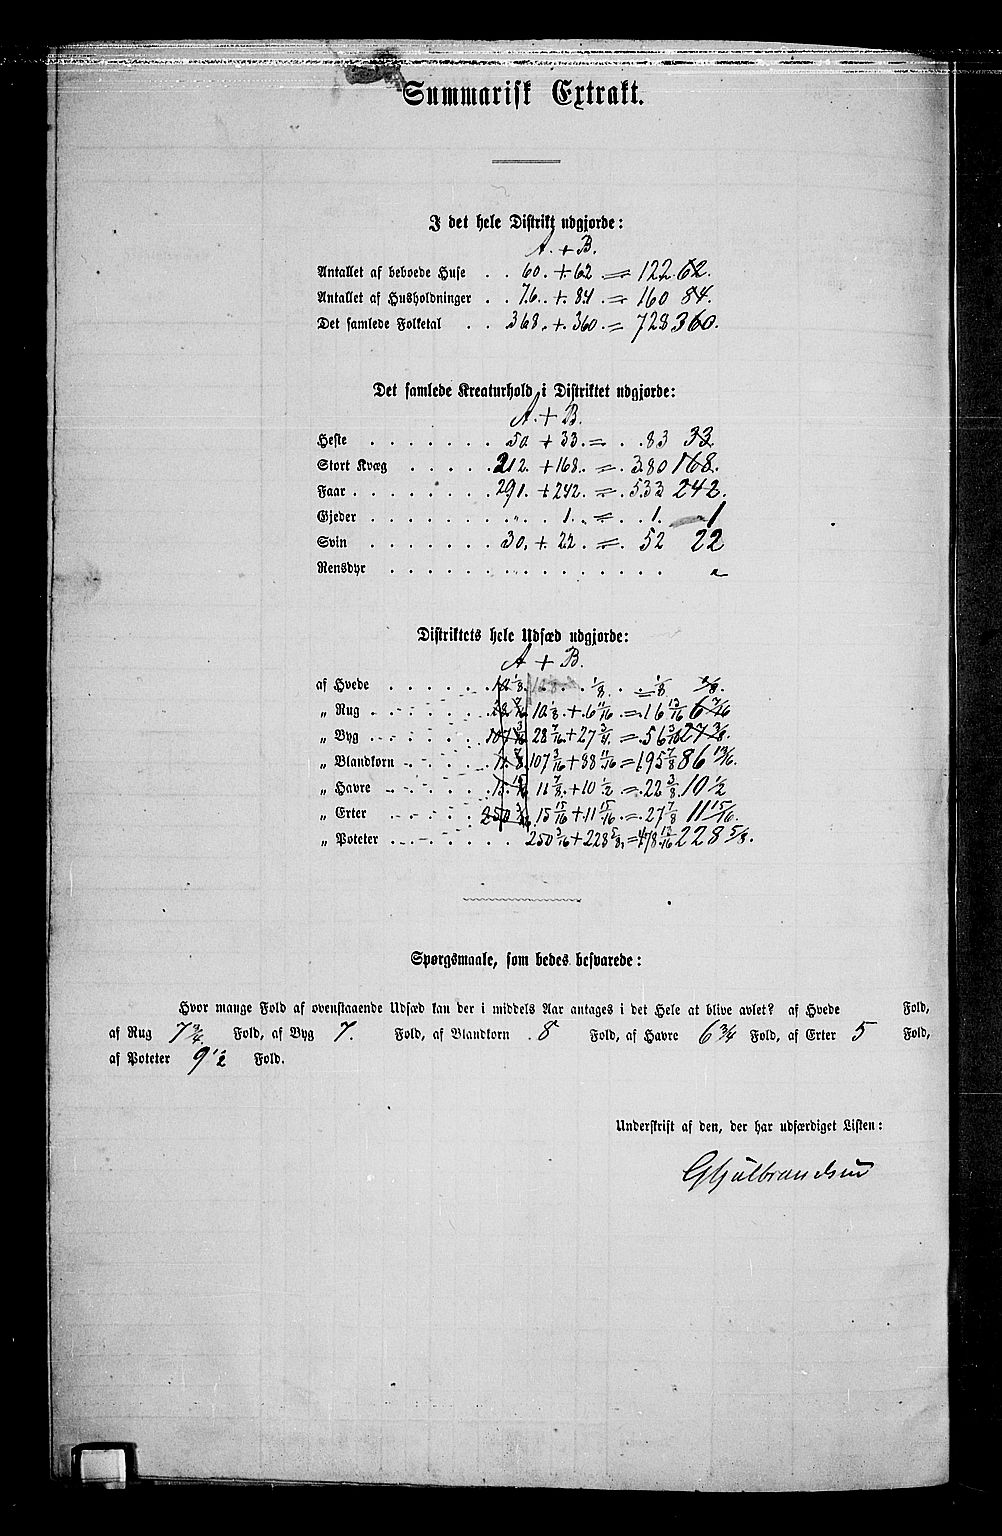 Summarisk Extrakt.
I det hele Distrikt udgjorde:
A. + B.
Antallet af beboede Huse . . 60. + 62 = 122 62.
Antallet af Husholdninger . . 76. + 84 = 160 84.
Det samlede Folketal . . 368. + 360. = 728 360.
Det samlede Kreaturhold i Distriktet udgjorde:
A. + B.
Heste . . . . . . . 50 + 33. = . . 83 33.
Stort Kvæg . . . . . 212. + 168. = 380 168.
Faar . . . . . . . . 291. + 242. = 533 242.
Gjeder . . . . . . . „ . . 1. „ = . . 1. 1
Svin . . . . . . . 30. + 22. = . 52 22
Rensdyr . . . . . . . . . . . . . . . . „
Distriktets hele Udsæd udgjorde:
A + B.
af Hvede . . . . . . 1/8. = 1/8 1/8.
„ Rug . . . . . . 10 1/8 + 6 11/16 = 16 13/16 6
„ Byg . . . . . . 28 7/16 + 27 3/8. = 56 27 3/8.
„ Blandkorn . . . . 107 3/16 + 88 11/16 = 195 7/8 86
„ Havre . . . . . . 11 7/8. + 10 1/2 = 22 3/8. 10 1/2
„ Erter . . . . . . 250 3/16 15 15/16 + 11 15/16 = 27 7/8 11 15/16.
„ Poteter . . . . . . . 250 3/16 + 228 5/8. = 478 13/16 228 5/8.
Spørgsmaale, som bedes besvarede:
Hvor mange Fold af ovenstaaende Udsæd kan der i middels Aar antages i det Hele at blive avlet? af Hvede Fold,
af Rug 7 3/4. Fold, af Byg 7. Fold, af Blandkorn . 8 Fold, af Havre 6 3/4 Fold, af Erter 5 Fold,
af Poteter 9 1/2 Fold.
Underskrift af den, der har udfærdiget Listen: